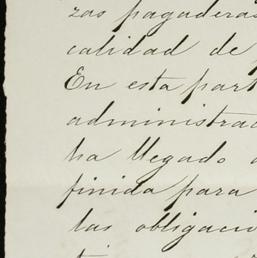 zas pagaderas
calidad de
En esta part
administrac
ha llegado
finida para
las obligaci